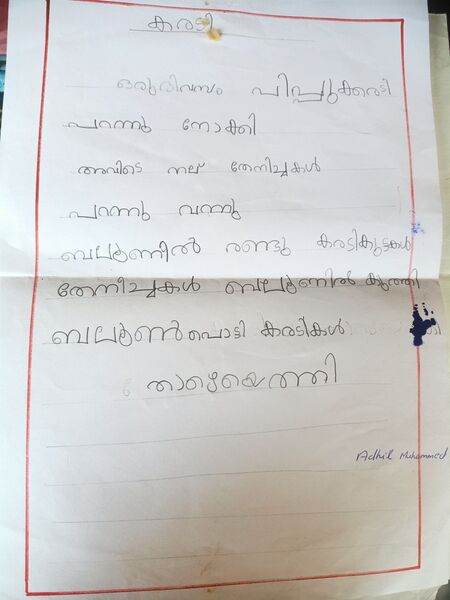 കരടി
ഒരുദിവസം പിപ്പ്ലുക്കരടി
പറന്നു നോക്കി
അവിടെ നല് തേനിച്ചകൾ
പറന്നു വന്നു
ബലൂണിൽ രണ്ടു കരടികുട്ടകൾ
തേനീച്ചകൾ ബലൂണിൽ കുത്തി
ബലൂൺ പൊട്ടി കരടികൾ
താഴെയെത്തി
Adhil Muhammed